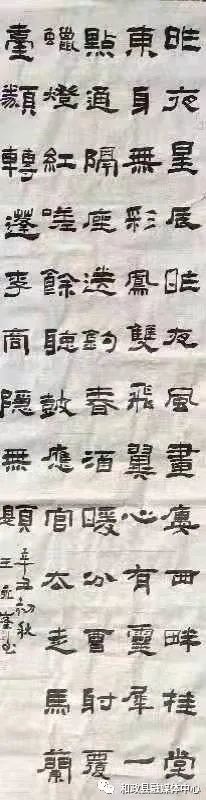 昨夜星辰昨夜風畫廔西畔桂堂
東身無彩鳳雙飛翼心有靈犀一
點通隔座送鈎春酒暖分曹射覆
蠟燈紅嗟餘聽鼓應官去走馬蘭
臺類轉蓬李商隱無題
辛丑初秋
王
和政县融媒体中心